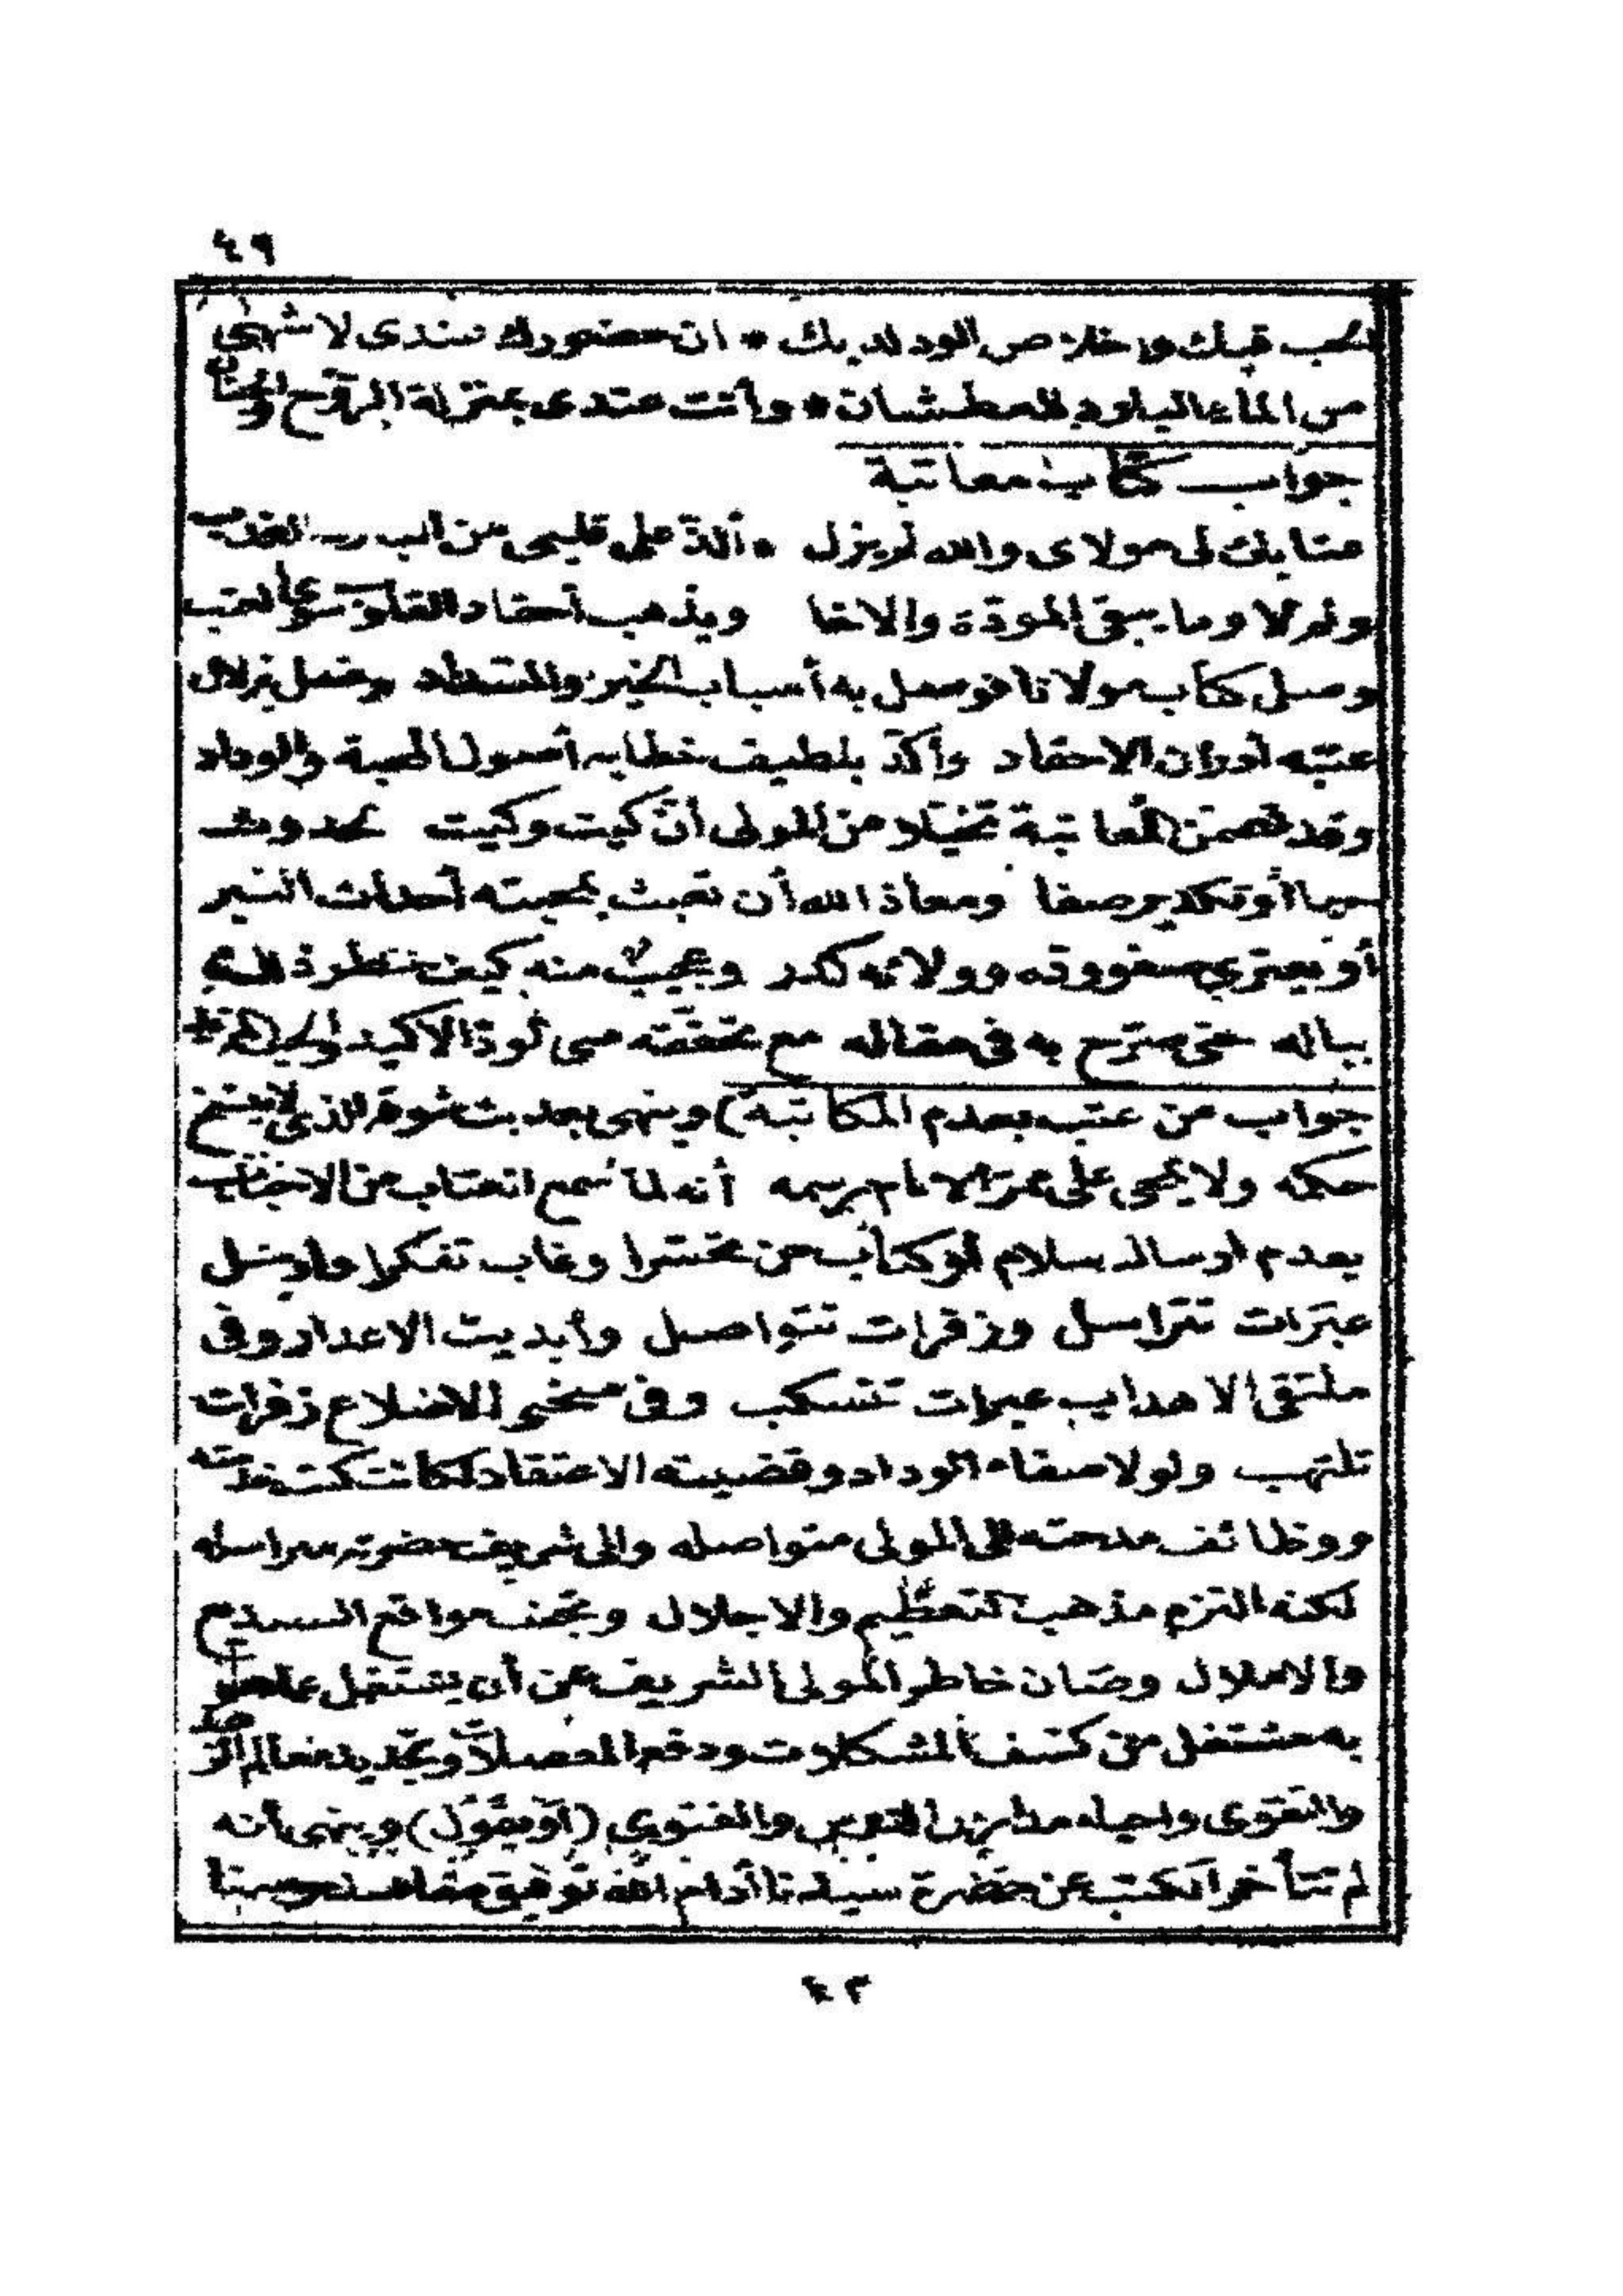 ٤٩
الحب قبلك واخلاص الود لديك * ان حضورك عندى لا شهى
من الماء البارد للعطشان * وأنت عندى بمنزلة الروح والجنان
جواب كتاب معاتبة
عتابك لى مولاى والله لم يزل * ألذ على قلبى من البارد العذب
ولم لا وما يبقى المودة والاخا ويذهب أحقاد القلوب سوى العتب
وصل كتاب مولانا فوصل به أسباب الخير وغسل بزلال
عتبه أدران الاحقاد وأكد بلطيف خطابه أصول المحبة والوداد
وقد تضمن المعاتبة تخيلا من المولى أن كيت وكيت بحدوث
أو تكدير صفا ومعاذ الله أن تعبث بمحبته أحداث الغير
أو يعترى صفو وده وولائه كدر وعجيب منه كيف خطر ذلك
بباله حتى صرح به فى مقاله مع تحققه الاكيد
جواب من عتب بعدم المكاتبة) وينهى بعد بث شوقه الذى لا ينسخ
حكمه ولا يمحى على مر الايام رسمه أنه لما سمع العتاب من الاحباب
بعدم ارسال سلام أو كتاب تحسرا وغاب تفكرا وأرسل
عبرات تتراسل وزفرات تتواصل وأبديت الاعذار وفى
ملتقى الاهداب عبرات تنسكب وفى منحنى الاضلاع زفرات
تلتهب ولولا صفاء الوداد وقضيته الاعتقاد لكانت كتب خدمته
ووظائف مدحته الى المولى متواصله والى شريف حضرته مراسله
لكنه التزم مذهب التعظيم والاجلال وتجنب مواقع
والاملال وصان خاطر المولى الشريف عن أن يشتغل عما هو
به مشتغل من كشف المشكلات ودفع المعضلات وتجديد معالم
والتقوى واحياء والفتوى (أو يقول) وينهى أنه
لم تتأخر الكتب عن حضرة سيدنا أدام الله توفيق
٤٢